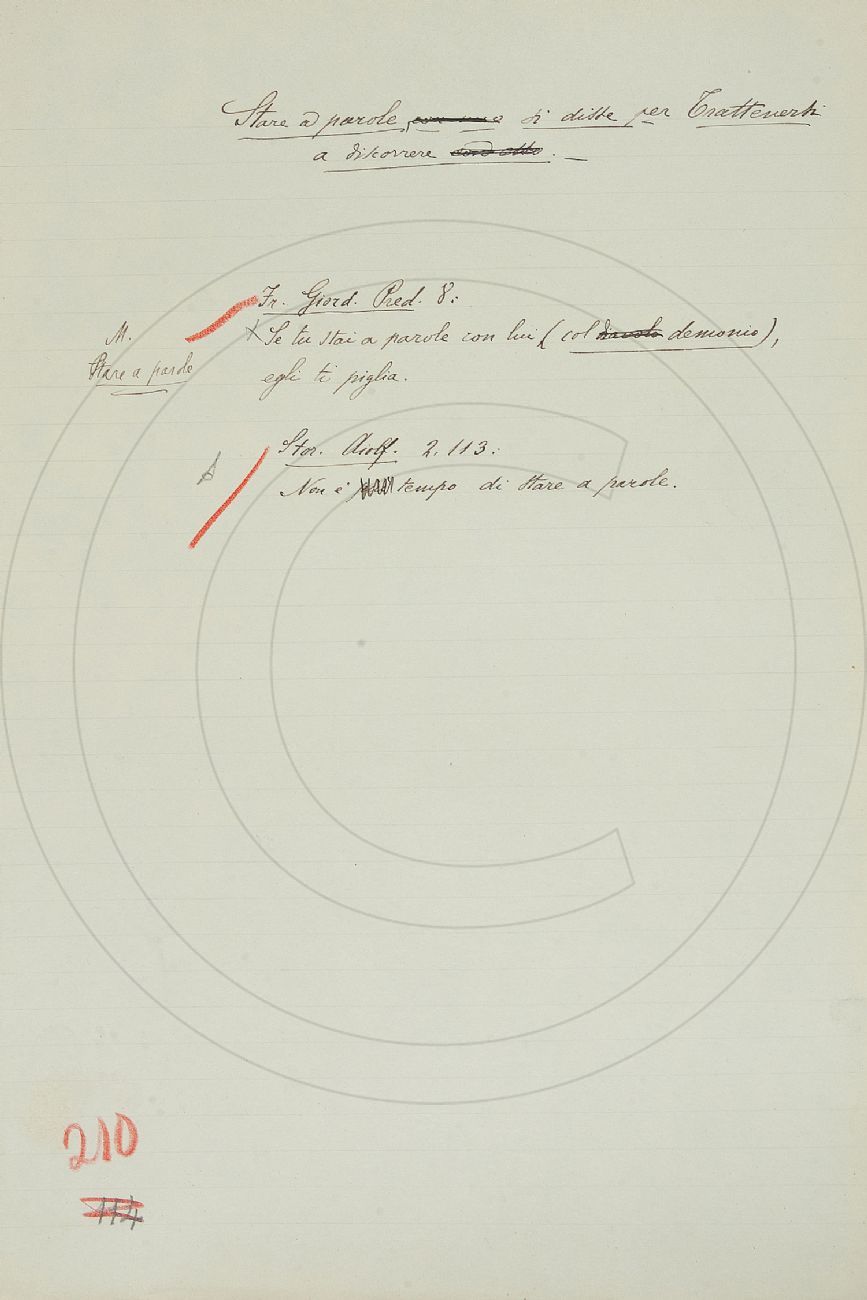 Stare a parole, si disse per Trattenersi
a discorrere . —
Fr. Giord. Pred. 8:
M.
Se tu stai a parole con lui (col diavolo demonio),
Stare a parole
egli ti piglia.
Stor. Aiolf. 2. 113:
Non è tempo di stare a parole.
210
114